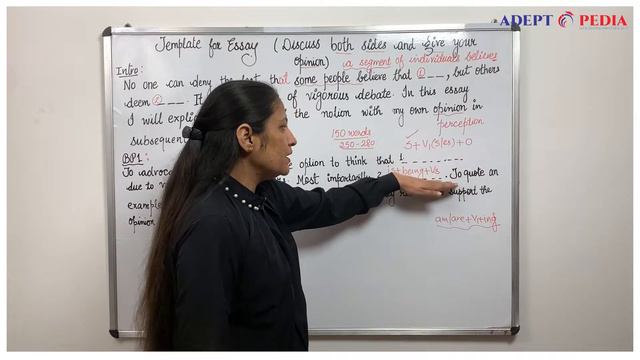 ADEPT PEDIA
Template for Essay (Discuss both sides and give your
opinion) (a segment of individuals believes
Intro:
No one can deny the fact that some people believe that ① ___, but others
deem ② ___. of vigorous debate. In this essay
I will the notion with my own opinion in
subsequent perception
150 words
250-280
✓
S+V1(s/es)+O
BP1:
To option to think that 1 _ _ _ _ _ _ _ _
being+V3
due to Most importantly 2 _ _ _ _ . To quote an
example support the
opinion
am/are+V1+ing